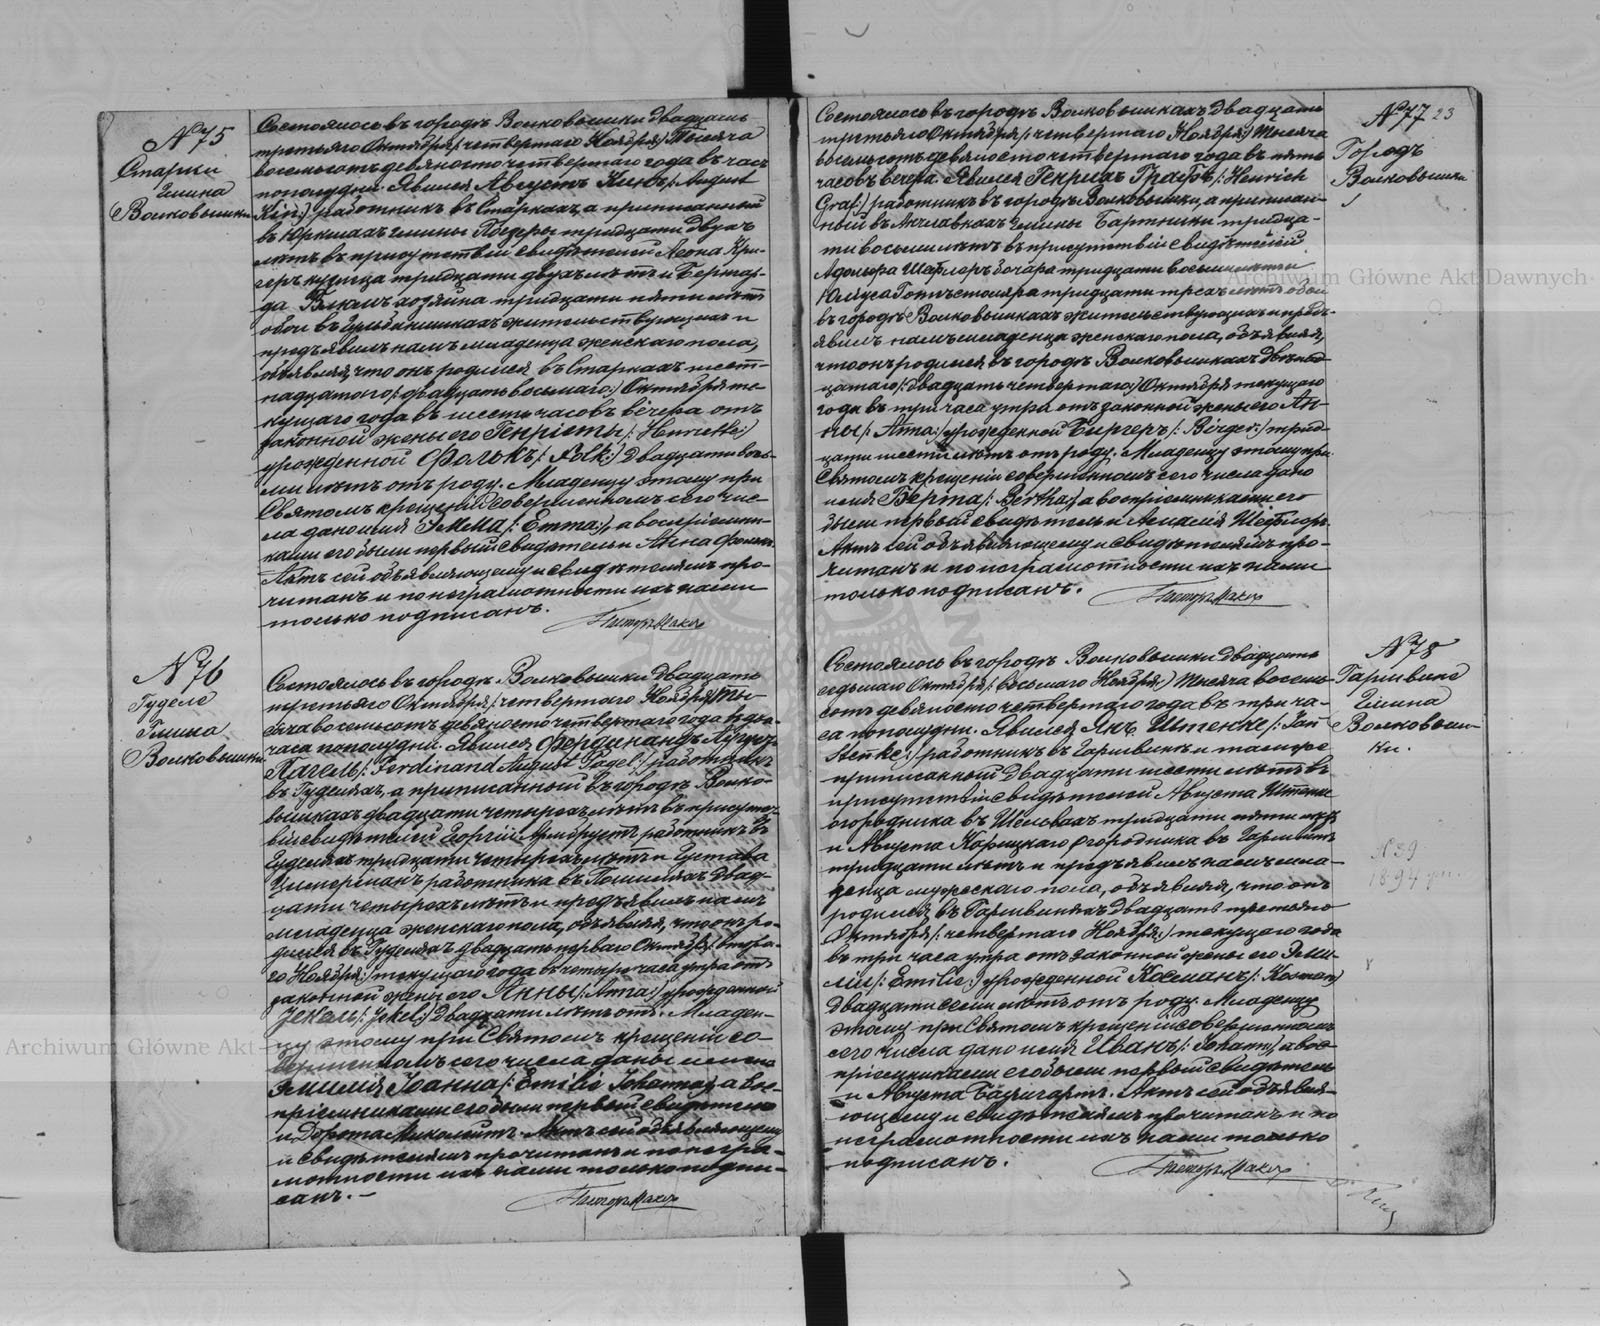 № 75
Старки
Гмина
Волковышки
Состоялось въ городѣ Волковышки двадцать
третьяго Октября /: четвертаго Ноября :/ тысяча
восемьсотъ девяносто четвертаго года въ часъ
пополудни. Явился Августъ Кинъ /: August
Kin :/ работникъ въ Старкахъ, а приписанный
въ гмины тридцати двухъ
лѣтъ въ присутствіи свидѣтелей Леона Кри-
геръ кузнеца тридцати двухъ лѣтъ и Бернар-
да хозяина тридцати пяти лѣтъ
обои въ жительствующихъ и
предъявилъ намъ младенца женскаго пола,
объявляя, что онъ родился въ Старкахъ шест-
надцатаго /: двадцать восьмаго :/ Октября те-
кущаго года въ шесть часовъ вечера отъ
законной жены его Генріеты /: Henriette :/
урожденной Фолькъ /: Folk :/ двадцати вось-
ми лѣтъ отъ роду. Младенцу этому при
Святомъ крещеніи совершенномъ сего чис-
ла дано имя Эмма /: Emma :/, а воспріемни-
ками его были первый свидѣтель и Анна Фолькъ.
Актъ сей объявляющему и свидѣтелямъ про-
читанъ и по неграмотности ихъ нами
только подписанъ.
Пасторъ
№ 76
Гуделе
Гмина
Волковышки
Состоялось въ городѣ Волковышки двадцать
третьяго Октября /: четвертаго Ноября :/ ты-
сяча восемьсотъ девяносто четвертаго года въ два
часа пополудни. Явился Фердинандъ Августъ
Пагель /: Ferdinand August Pagel :/ работникъ
въ Гуделяхъ, а приписанный въ городѣ Волко-
вышкахъ двадцати четырехъ лѣтъ въ присутст-
віи свидѣтелей работникъ въ
Гуделяхъ тридцати четырехъ лѣтъ и Густава
Цимерманъ работника въ двад-
цати четырехъ лѣтъ и предъявилъ намъ
младенца женскаго пола, объявляя, что онъ ро-
дился въ Гуделяхъ двадцать перваго Октября /: втора-
го Ноября :/ текущаго года въ четыре часа утра отъ
законной жены его Анны /: Anna :/ урожденной
Јекель /: Jekel :/ двадцати лѣтъ отъ. Младен-
цу этому при Святомъ крещеніи со-
вершенномъ сего числа даны имена
Эмилія Іоанна /: Emilie Johanna :/ а вос-
пріемниками его были первый свидѣтель
и Дорота Миколейтъ. Актъ сей объявляющему
и свидѣтелямъ прочитанъ и по негра-
мотности ихъ нами только подпи-
санъ. —
Пасторъ
№ 77 23
Городъ
Волковышки
Состоялось въ городѣ Волковышкахъ двадцать
третьяго Октября /: четвертаго Ноября :/ тысяча
восемьсотъ девяносто четвертаго года въ пять
часовъ вечера. Явился Генрихъ Графъ /: Henrich
Graf :/ работникъ въ городѣ Волковышки, а приписан-
ный въ гмины Бартники тридца-
ти восьми лѣтъ въ присутствіи свидѣтелей
Адольфа Шефлеръ бочара тридцати восьми лѣтъ и
Юлиуса столяра тридцати трехъ лѣтъ обои
въ городѣ Волковышкахъ жительствующихъ и предъ-
явилъ намъ младенца женскаго пола, объявляя,
что онъ родился въ городѣ Волковышкахъ двѣнад-
цатаго /: двадцать четвертаго :/ Октября текущаго
года въ три часа утра отъ законной жены его Ан-
ны /: Anna :/ урожденной Биргеръ /: Birger :/ трид-
цати шести лѣтъ отъ роду. Младенцу этому при
Святомъ крещеніи совершенномъ сего числа дано
имя Берта /: Bertha :/ а воспріемниками его
были первый свидѣтель и Амалія Шефлеръ.
Актъ сей объявляющему и свидѣтелямъ про-
читанъ и по неграмотности ихъ нами
только подписанъ.
Пасторъ
№ 78
Гмина
Волковыш-
ки.
Состоялось въ городѣ Волковышки двадцать
седьмаго Октября /: восьмаго Ноября :/ тысяча восемь-
сотъ девяносто четвертаго года въ три ча-
са пополудни. Явился Янъ Штенке /: Jan
Stenke :/ работникъ въ и тамъ же
приписанный двадцати шести лѣтъ въ
присутствіи свидѣтелей Августа Штенке
огородника въ тридцати пяти лѣтъ
и Августа огородника въ
тридцати лѣтъ и предъявилъ намъ мла-
денца мужескаго пола, объявляя, что онъ
родился въ двадцать третьяго
Октября /: четвертаго Ноября :/ текущаго года
въ три часа утра отъ законной жены его Эми-
ліи /: Emilie :/ урожденной Косманъ /: Kosman :/
двадцати семи лѣтъ отъ роду. Младенцу
этому при Святомъ крещеніи совершенномъ
сего числа дано имя Иванъ /: Johann :/, а вос-
пріемниками его были первый свидѣтель
и Августа Баумгартъ. Актъ сей объявля-
ющему и свидѣтелямъ прочитанъ и по
неграмотности ихъ нами только
подписанъ.
Пасторъ
Archiwum Główne Akt Dawnych
Archiwum Główne Akt Dawnych